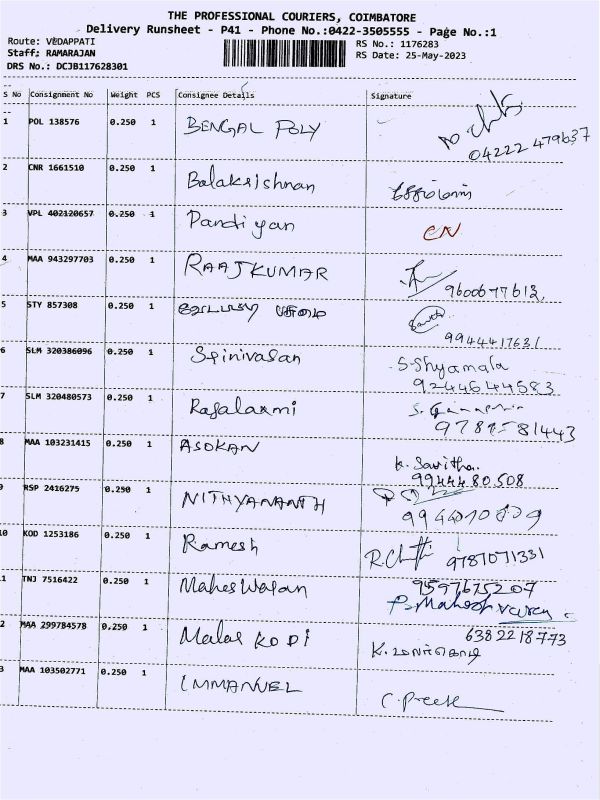 THE PROFESSIONAL COURIERS, COIMBATORE
Delivery Runsheet - P41 - Phone No.:0422-3505555 - Page No.:1
Route: VEDAPPATI
RS No.: 1176283
Staff: RAMARAJAN
RS Date: 25-May-2023
DRS No.: DCJB117628301
S No Consignment No Weight PCS Consignee Details Signature
1 POL 138576 0.250 1 BENGAL POLY
04222 479637
2 CNR 1661510 0.250 1 Balakrishnan
3 VPL 402120657 0.250 1 Pandiyan CN
4 MAA 943297703 0.250 1 RAAJKUMAR
9600677612
5 STY 857308 0.250 1
9944417631
6 SLM 320386096 0.250 1 Srinivasan S-Shyamala
9244644583
7 SLM 320480573 0.250 1 Rajalaxmi S.
8 MAA 103231415 0.250 1 ASOKAN K. Savitha.
9944480508
9 RSP 2416275 0.250 1 NITHYANANTH
10 KOD 1253186 0.250 1 Ramesh 9787071331
1 TNJ 7516422 0.250 1 Maheswaran 9597675207
P. Maheshwaran.
2 MAA 299784578 0.250 1 Malar KODI 6382218773
K. மலர்கொடி
3 MAA 103502771 0.250 1 IMMANUEL
C. Preeth